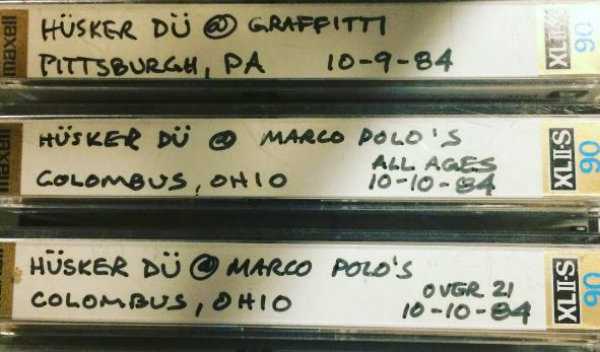 maxell
HÜSKER DÜ @ GRAFFITTI
PITTSBURGH, PA 10-9-84
XLII
90
maxell
HÜSKER DÜ @ MARCO POLO'S
ALL AGES
COLOMBUS, OHIO 10-10-84
XLII-S
90
HÜSKER DÜ @ MARCO POLO'S
OVER 21
COLOMBUS, OHIO 10-10-84
XLII-S
90